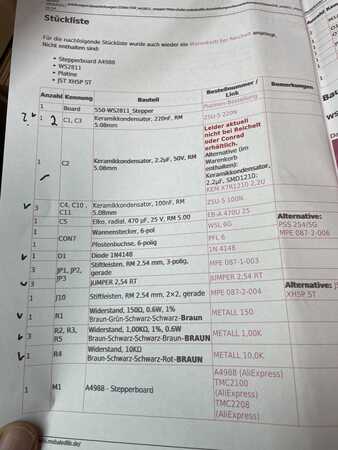 Stückliste
Für die nachfolgende Stückliste wurde auch wieder ein Warenkorb bei Reichelt angelegt.
Nicht enthalten sind:
• Stepperboard A4988
• WS2811
• Platine
• JST XHSP 5T
Anzahl Kennung Bauteil Bestellnummer / Link Bemerkungen
1 Board 550-WS2811_Stepper Platinen-Bestellung
2 C1, C3 Keramikkondensator, 220nF, RM 5.08mm ZSU-5 220N
1 C2 Keramikkondensator, 2.2µF, 50V, RM 5.08mm
Leider aktuell
nicht bei Reichelt
oder Conrad
erhältlich.
Alternative (im
Warenkorb
enthalten):
Keramikkondensator,
2.2µF, SMD1210:
KEN X7R1210 2,2U
3 C4, C10, C11 Keramikkondensator, 100nF, RM 5.08mm ZSU-5 100N
1 C5 Elko, radial, 470 µF, 25 V, RM 5.00 EB-A 470U 25
1 CON7 Wannenstecker, 6-pol WSL 6G Alternative: PSS 254/5G
1 Pfostenbuchse, 6-polig PFL 6 MPE 087-2-006
1 D1 Diode 1N4148 1N 4148
3 JP1, JP2, JP3 Stiftleisten, RM 2,54 mm, 3-polig, gerade MPE 087-1-003
3 JUMPER 2,54 RT JUMPER 2,54 RT
1 J10 Stiftleisten, RM 2,54 mm, 2×2, gerade MPE 087-2-004 Alternative:
XHSP 5T
1 R1 Widerstand, 150Ω, 0.6W, 1%
Braun-Grün-Schwarz-Schwarz-Braun METALL 150
3 R2, R3, R5 Widerstand, 1,00KΩ, 1%, 0.6W
Braun-Schwarz-Schwarz-Braun-BRAUN METALL 1,00K
1 R4 Widerstand, 10KΩ
Braun-Schwarz-Schwarz-Rot-BRAUN METALL 10,0K
1 M1 A4988 - Stepperboard A4988 (AliExpress)
TMC2100
(AliExpress)
TMC2208
(AliExpress)